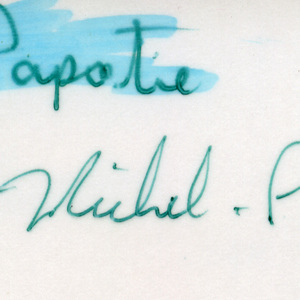 Papotie
Michel - P